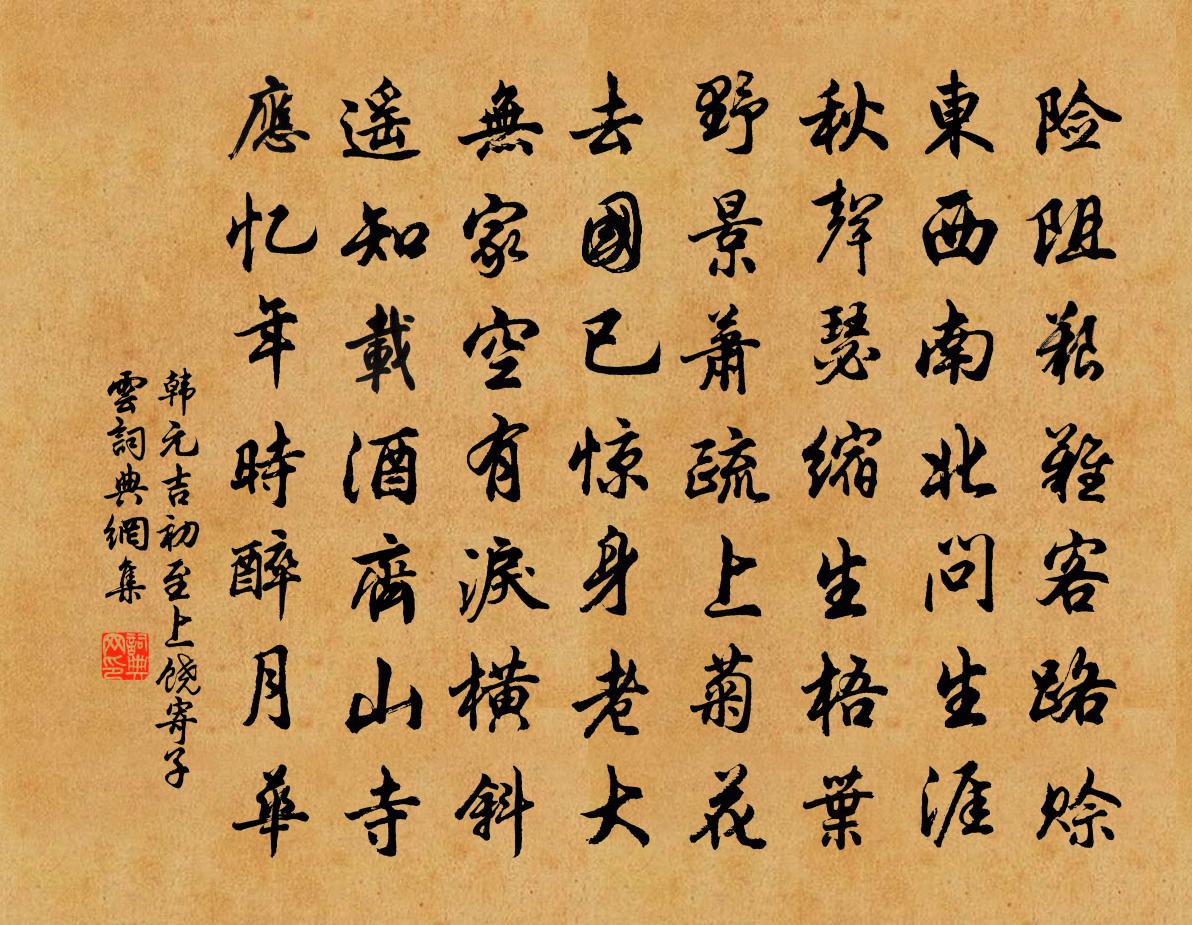 险阻艱難客路赊
東西南北問生涯
秋聲瑟缩生梧葉
野景蕭疏上菊花
去國已惊身老大
無家空有淚橫斜
遥知載酒齊山寺
應忆年時醉月華
韩元吉初至上饶寄子
雲詞典網集
詞典網印